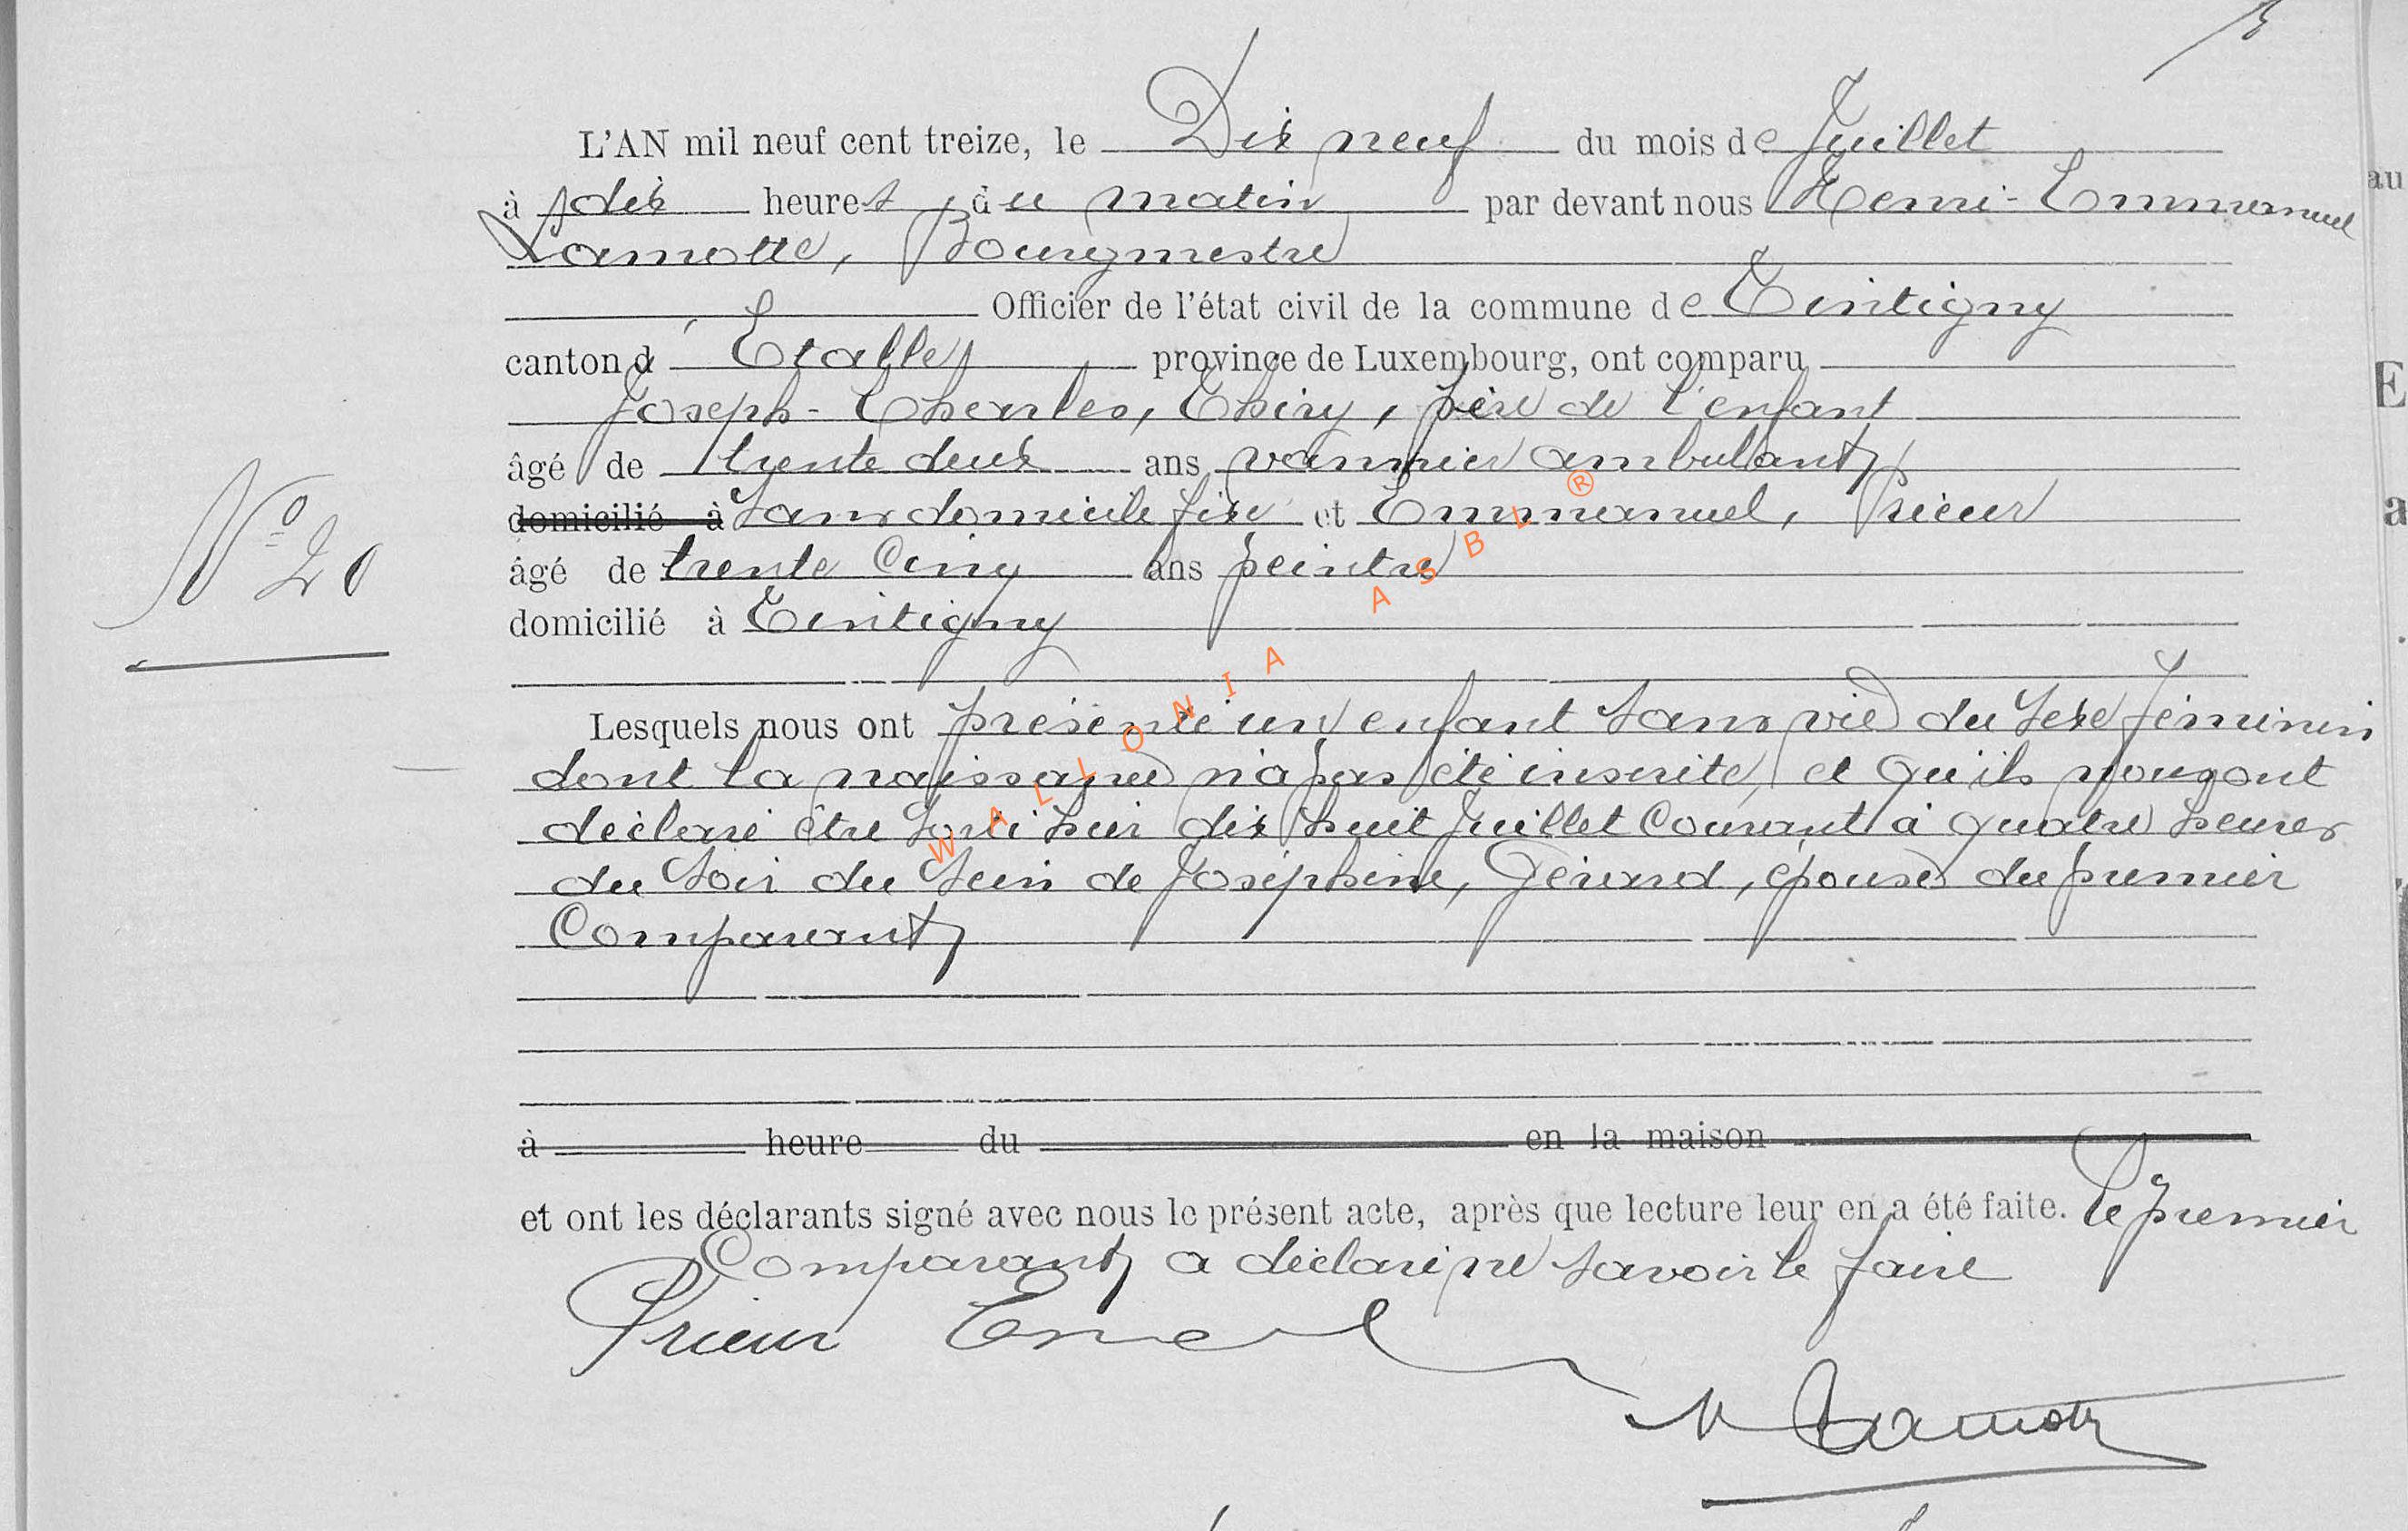 L'AN mil neuf cent treize, le Dix neuf du mois de Juillet
à dix heures du matin par devant nous Henri-Emmanuel
Lamotte, Bourgmestre
Officier de l'état civil de la commune de Tintigny
canton d'Etalle, province de Luxembourg, ont comparu
Joseph-Charles, Thiry, père de l'enfant
âgé de trente deux ans vannier ambulant
domicilié à Sans domicile fixe et Emmanuel, Prieur
âgé de trente Cinq ans peintre
domicilié à Tintigny
N° 20
Lesquels nous ont présenté un enfant sans vie du sexe féminin
dont la naissance n'a pas été inscrite, et qu'ils nous ont
déclaré être sorti hier dix huit Juillet Courant à quatre heures
du soir du sein de Joséphine, Gérard, épouse du premier
Comparant
à heure du en la maison
et ont les déclarants signé avec nous le présent acte, après que lecture leur en a été faite. le premier
Comparant a déclaré ne savoir le faire
Prieur Emel
H Lamotte
WALLONIA ASBL ®
au
E
a